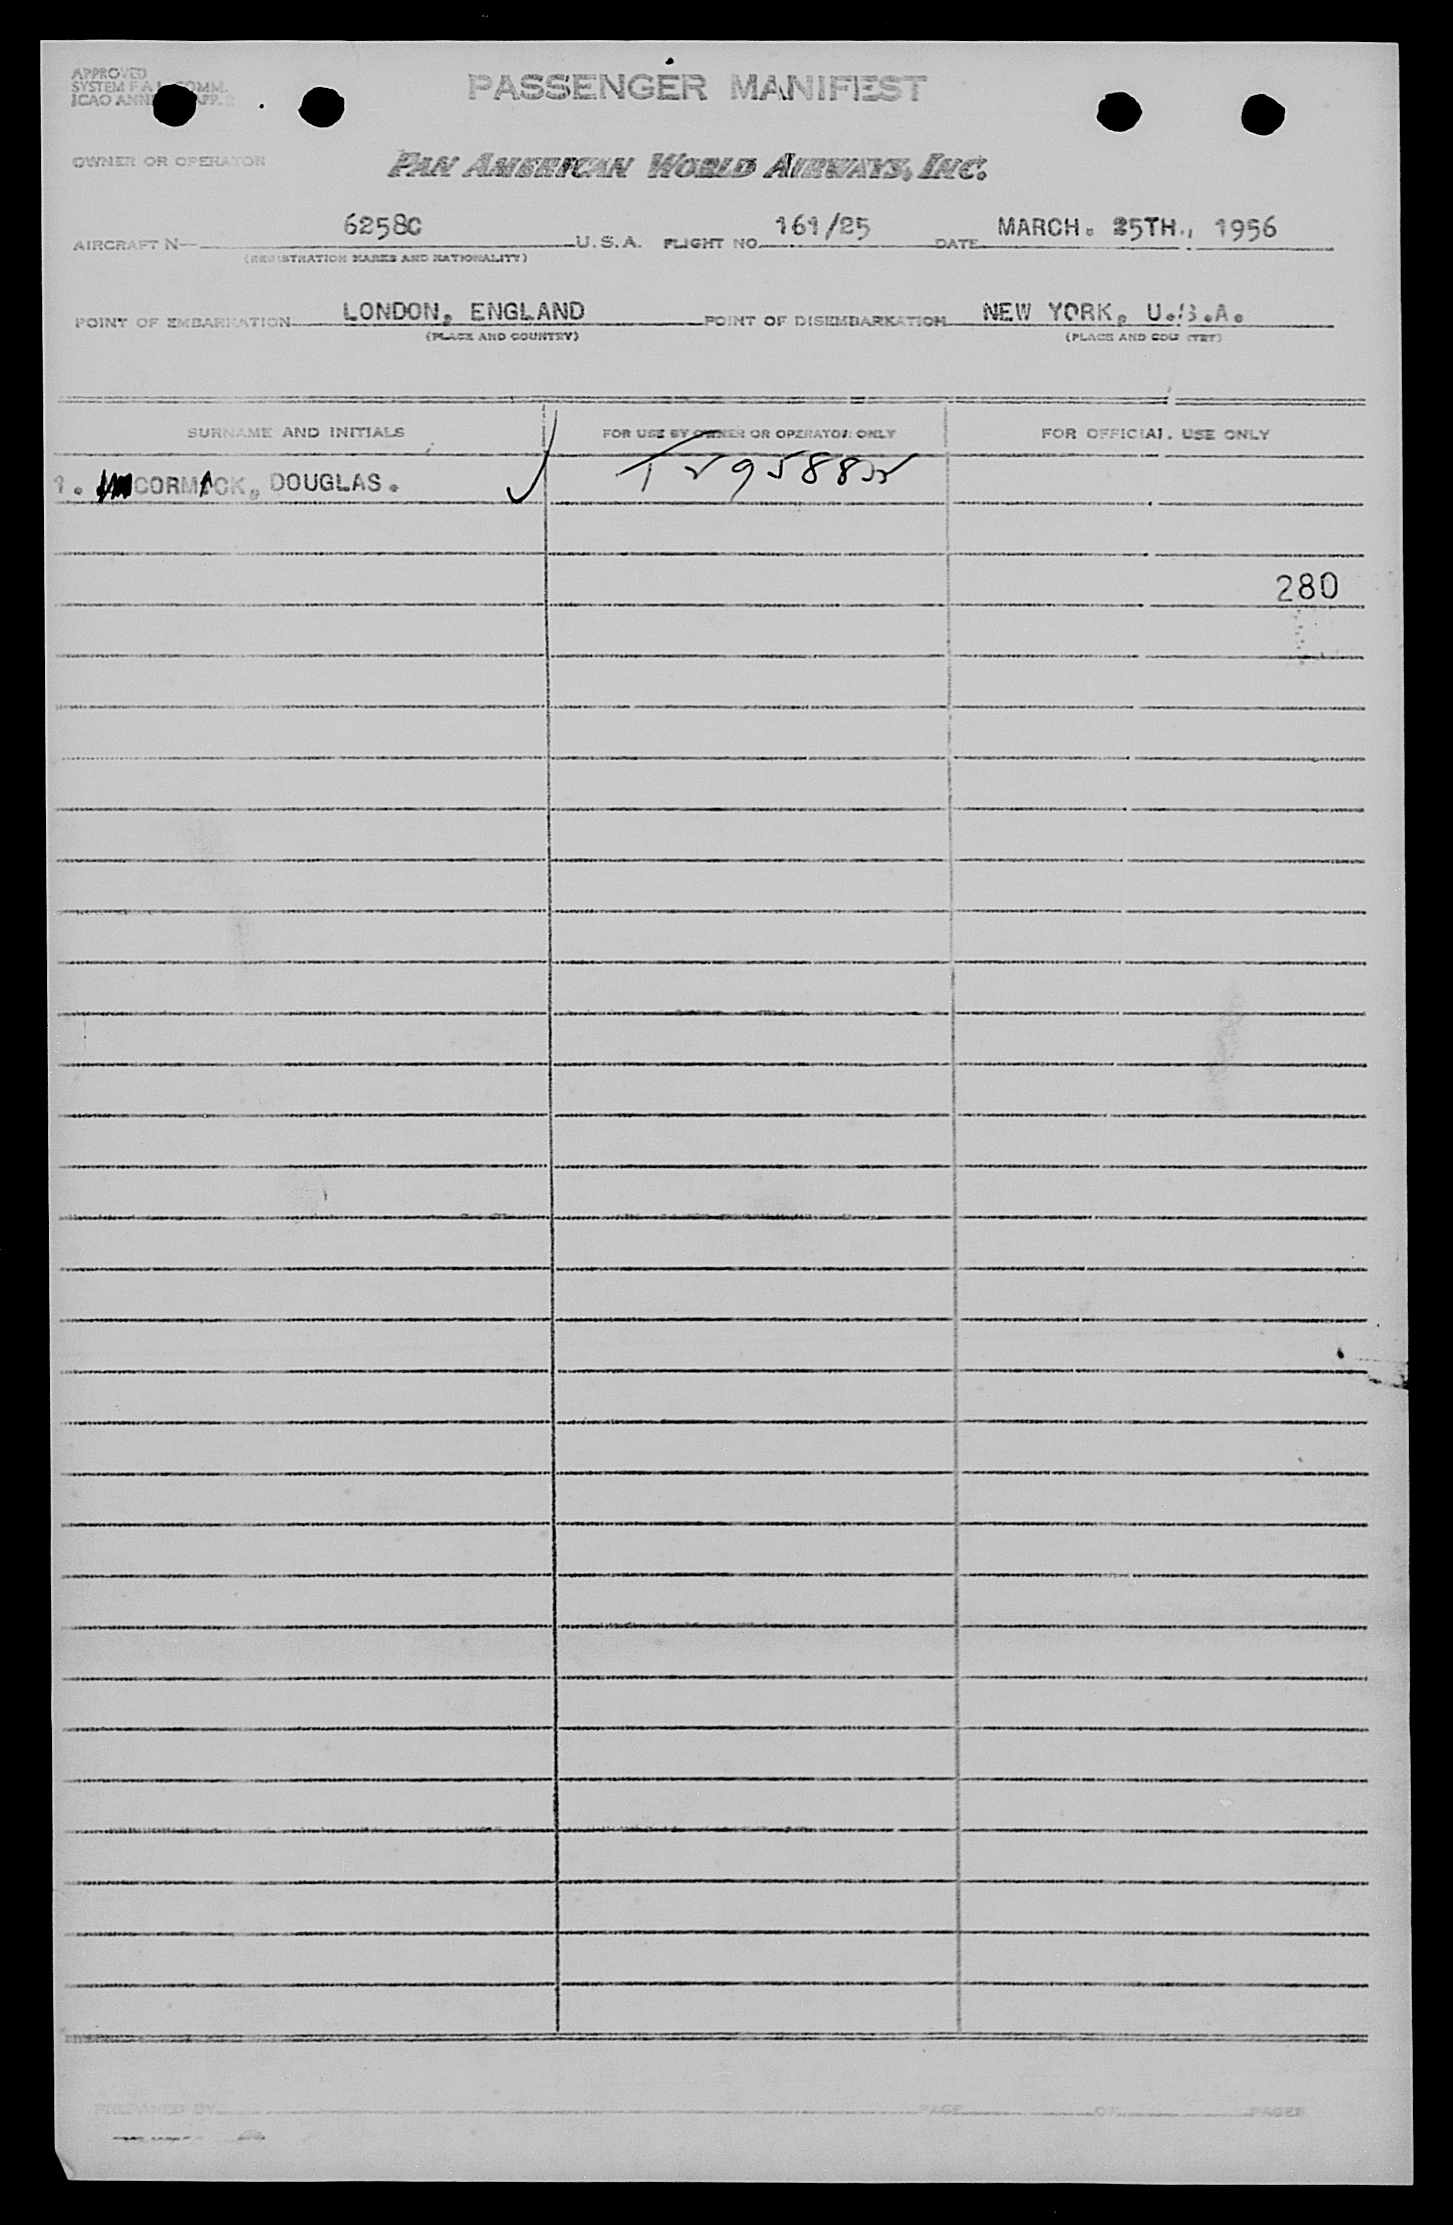 APPROVED
SYSTEM F.A.L. COMM.
ICAO ANNEX APP.
PASSENGER MANIFEST
OWNER OR OPERATOR PAN AMERICAN WORLD AIRWAYS, INC.
AIRCRAFT N— 6258C U.S.A. FLIGHT NO. 161/25 DATE MARCH. 25TH., 1956
(REGISTRATION MARKS AND NATIONALITY)
POINT OF EMBARKATION LONDON, ENGLAND POINT OF DISEMBARKATION NEW YORK, U.S.A.
(PLACE AND COUNTRY) (PLACE AND COUNTRY)
SURNAME AND INITIALS FOR USE BY OWNER OR OPERATOR ONLY FOR OFFICIAL USE ONLY
1. CORMACK, DOUGLAS.
280
PREPARED BY PAGE OF PAGES